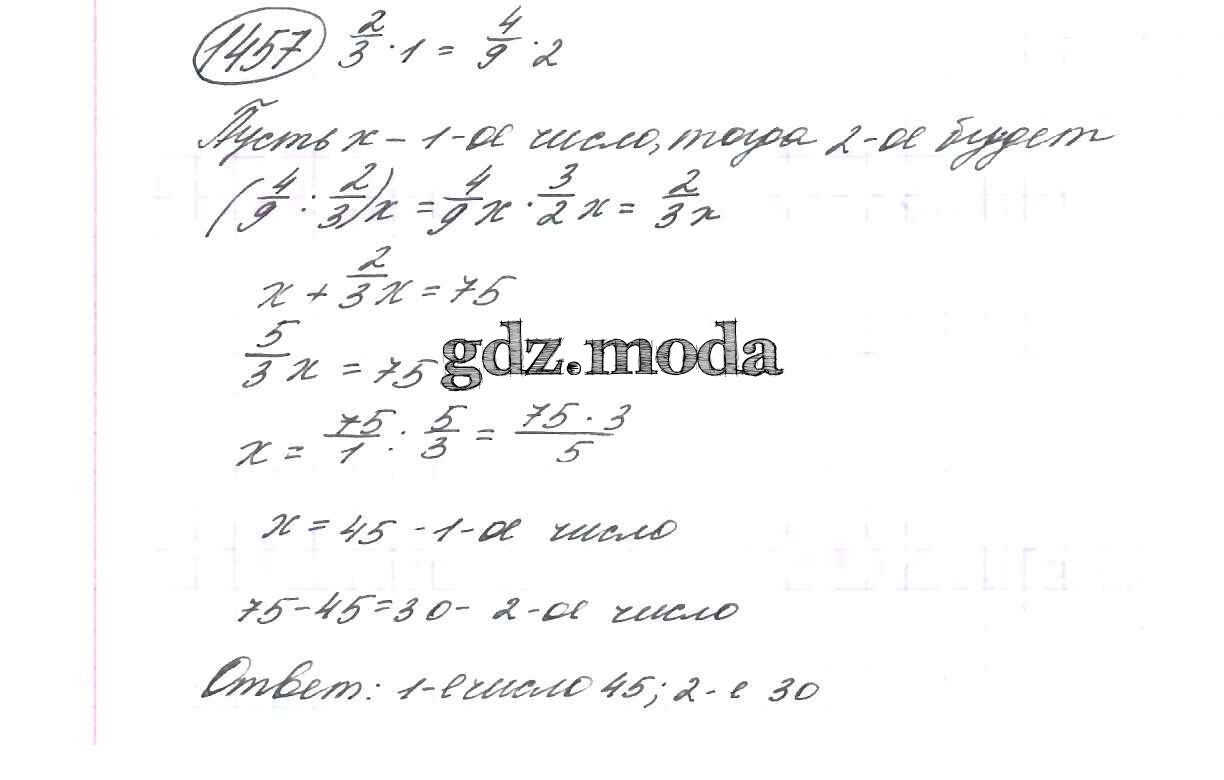 1457 2/3 · 1 = 4/9 · 2
Пусть x – 1-ое число, тогда 2-ое будет
(4/9 : 2/3)x = 4/9 x · 3/2 x = 2/3 x
x + 2/3 x = 75
5/3 x = 75
gdz.moda
x = 75/1 : 5/3 = 75 · 3/5
x = 45 - 1-ое число
75 - 45 = 30 - 2-ое число
Ответ: 1-е число 45; 2-е 30